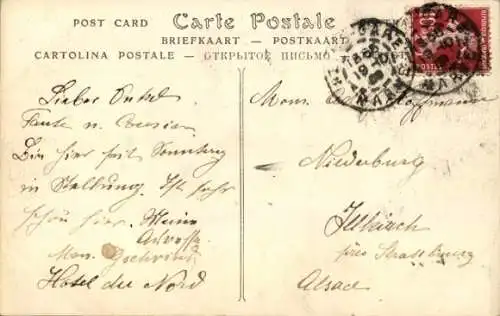 POST CARD
Carte Postale
BRIEFKAART - POSTKAART
CARTOLINA POSTALE - ОТКРЫТОЕ ПИСЬМО
GARE
MARNE
Lieber Onkel
Tante u. Cousin
Bin hier seit Sonntag
in Stellung. Ist sehr
schön hier. Meine
Adresse
Mon.
Hotel du Nord
Mons. Hoffmann
Niederburg
Illkirch
près Strassburg
Alsace